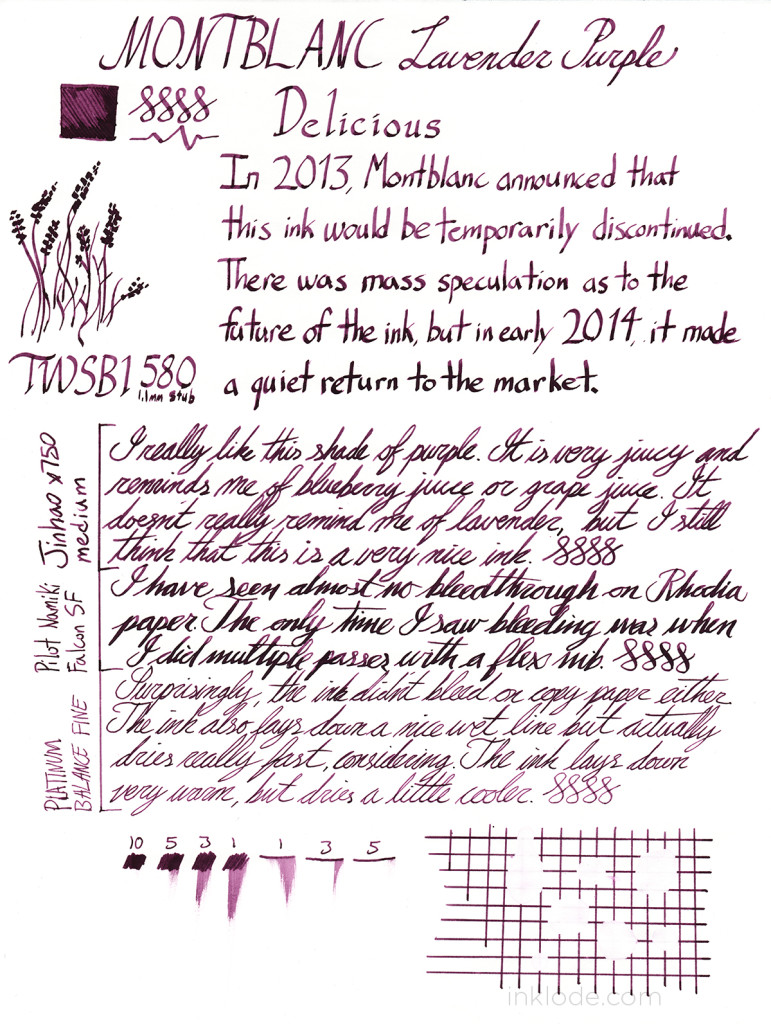 MONTBLANC Lavender Purple
Delicious
In 2013, Montblanc announced that
this ink would be temporarily discontinued.
There was mass speculation as to the
future of the ink, but in early 2014, it made
a quiet return to the market.
TWSBI 580
1.1mm stub
Jinhao x750
medium
I really like this shade of purple. It is very juicy and
reminds me of blueberry juice or grape juice. It
doesn't really remind me of lavender, but I still
think that this is a very nice ink.
Pilot Namiki
Falcon SF
I have seen almost no bleedthrough on Rhodia
paper. The only time I saw bleeding was when
I did multiple passes with a flex nib.
PLATINUM
BALANCE FINE
Surprisingly, the ink didn't bleed on copy paper either.
The ink also lays down a nice wet line but actually
dries really fast, considering. The ink lays down
very warm, but dries a little cooler.
10 5 3 1 1 3 5
inklode.com